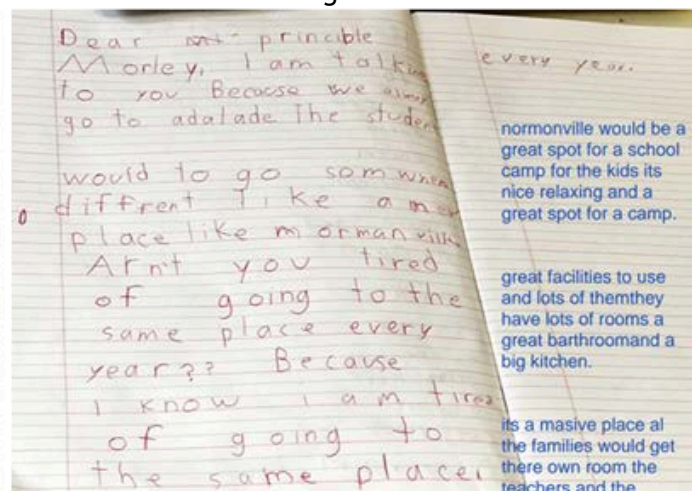 Dear princible
Morley, I am talking
to you Because we
go to adalade The student
would to go som when
diffrent Like a
place like mormanville
Arn't you tired
of going to the
same place every
year?? Because
I know I am tired
of going to
the same place
every year.
normonville would be a
great spot for a school
camp for the kids its
nice relaxing and a
great spot for a camp.
great facilities to use
and lots of themthey
have lots of rooms a
great barthroomand a
big kitchen.
its a masive place al
the families would get
there own room the
teachers and the